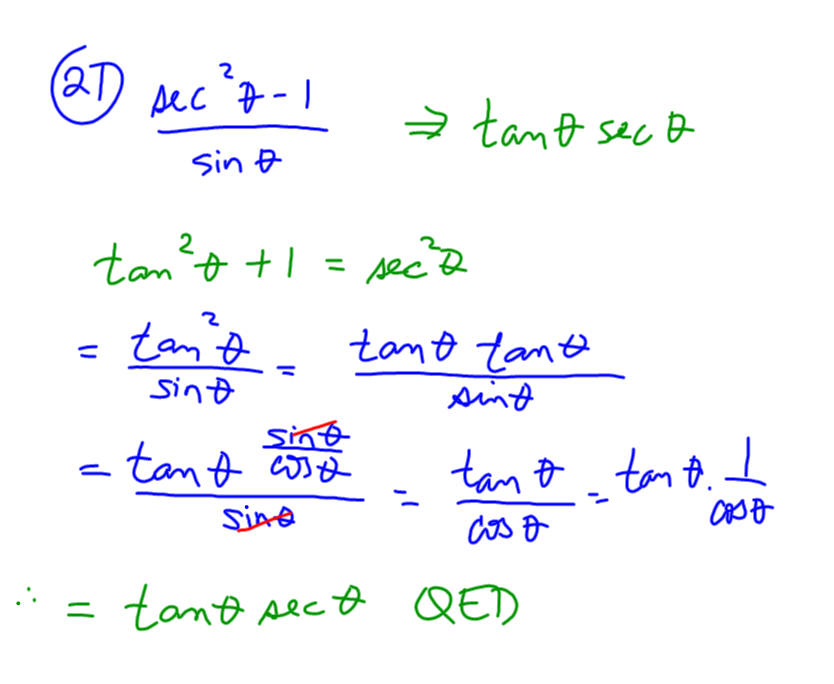 27) (sec²θ - 1)/(sin θ) ⇒ tan θ sec θ
tan²θ + 1 = sec²θ
= (tan²θ)/(sin θ) = (tan θ tan θ)/(sin θ)
= (tan θ (sin θ)/(cos θ))/(sin θ) = (tan θ)/(cos θ) = tan θ · 1/(cos θ)
∴ = tan θ sec θ QED